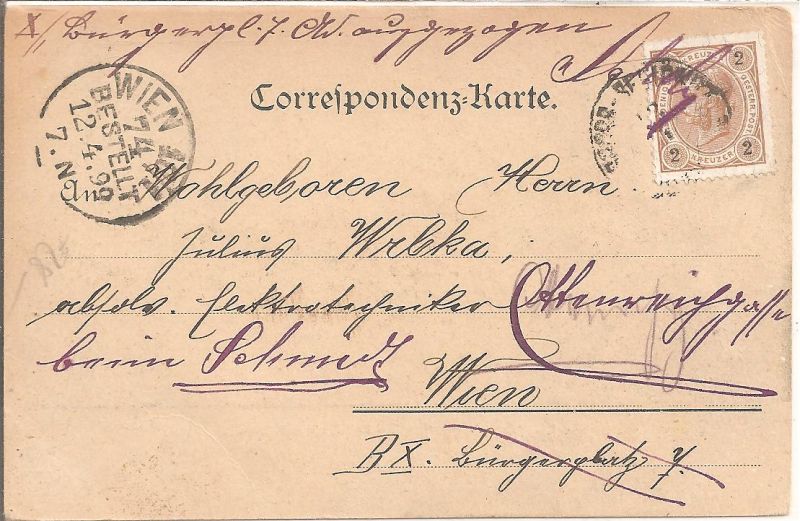 X/, Bürgerpl. 7. Ad. ausgezogen
WIEN
74
BESTELLT
12.4.99
7.N
KREUZER
OESTERR. POST
2
2 KREUZER 2
Correspondenz-Karte.
An Wohlgeboren Herrn
Julius Wrbka,
absolv. Elektrotechniker Ottenreichgasse
beim Schmidt
Wien
B X. Bürgerplatz 7.